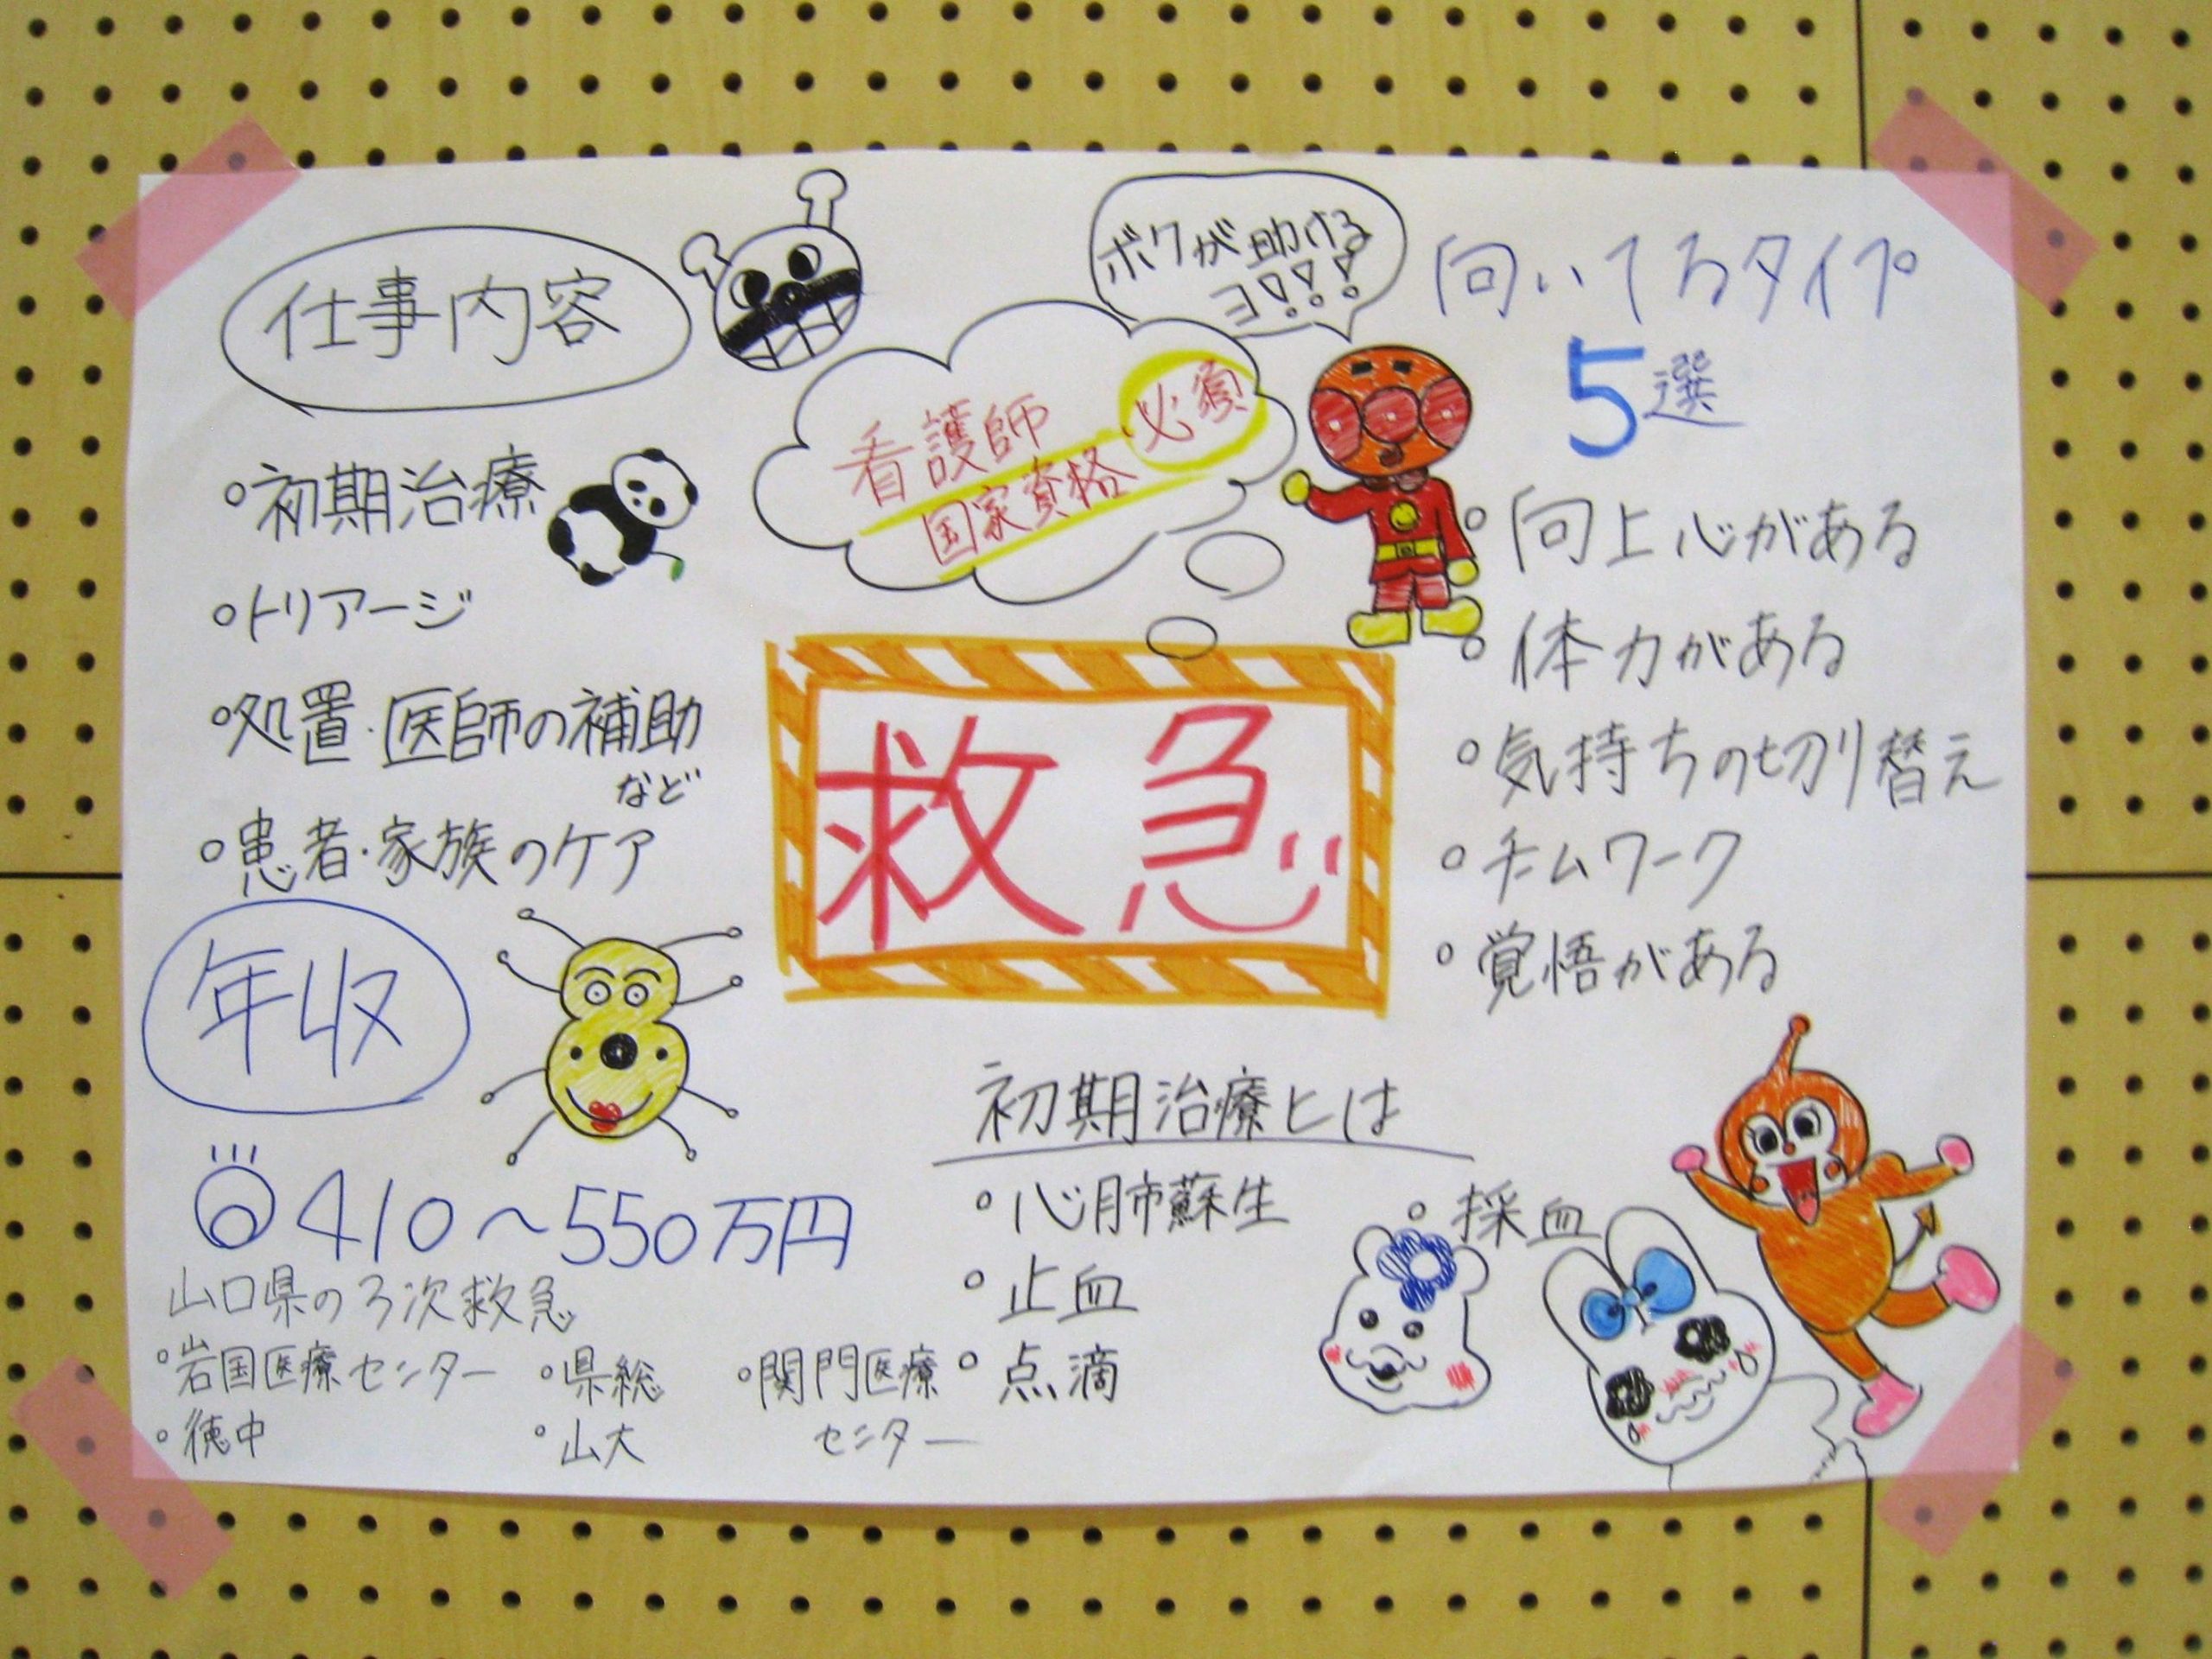 仕事内容
○初期治療
○トリアージ
○処置・医師の補助
など
○患者・家族のケア
年収
410〜550万円
山口県の3次救急
○岩国医療センター
○県総
○関門医療
センター
○徳中
○山大
看護師
国家資格
必須
ボクが助ける
ヨ!!!
救急
初期治療とは
○心肺蘇生
○採血
○止血
○点滴
向いてるタイプ
5選
○向上心がある
○体力がある
○気持ちの切り替え
○チームワーク
○覚悟がある